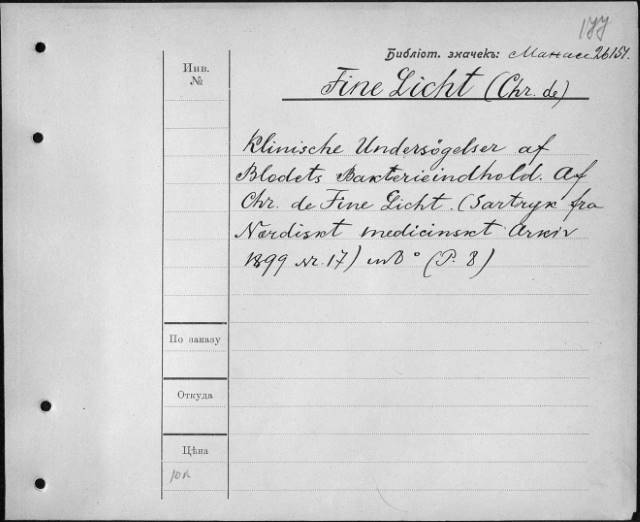 177
Библіот. значекъ: Манас 26151.
Инв. №
Fine Licht (Chr. de)
Klinische Undersögelser af
Blodets Bakterieindhold. Af
Chr. de Fine Licht. (Sartryk fra
Nordiskt medicinskt Arkiv
1899 nr. 17) in 8° (P. 8)
По заказу
Откуда
Цѣна
10к